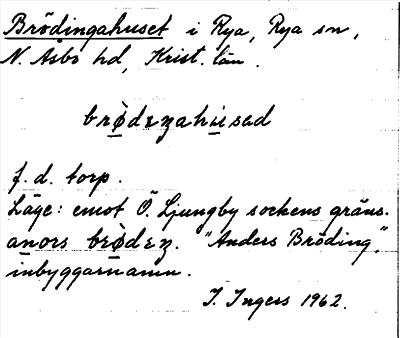 Brödingahuset i Rya, Rya sn,
N. Åsbo hd, Krist. län.
brø̀dɪŋahúsad
f. d. torp.
Läge: emot Ö. Ljungby sockens gräns.
anɔrs brø̀dɪŋ. "Anders Bröding",
inbyggarnamn.
I. Ingers 1962.